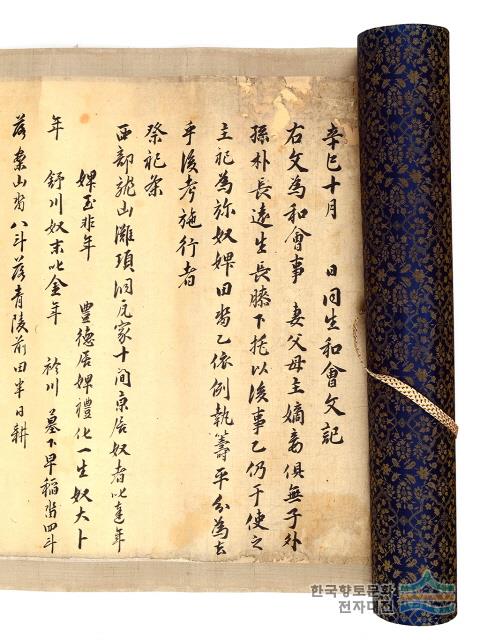 辛巳十月 日同生和會文記
右文為和會事 妻父母主嫡妾俱無子外
孫朴長遠生長膝下托以後事乙仍于使之
主祀為旀奴婢田畓乙依例執籌平分為去
乎後考施行者
祭祀条
西部龍山灘項洞瓦家十間京居奴者叱達年
婢玉非年 豊德居婢禮化一生奴大卜
年 舒川奴末叱金年 衿川墓下早稻畓四斗
落 山畓八斗落青陵前田半日耕
한국향토문화
전자대전